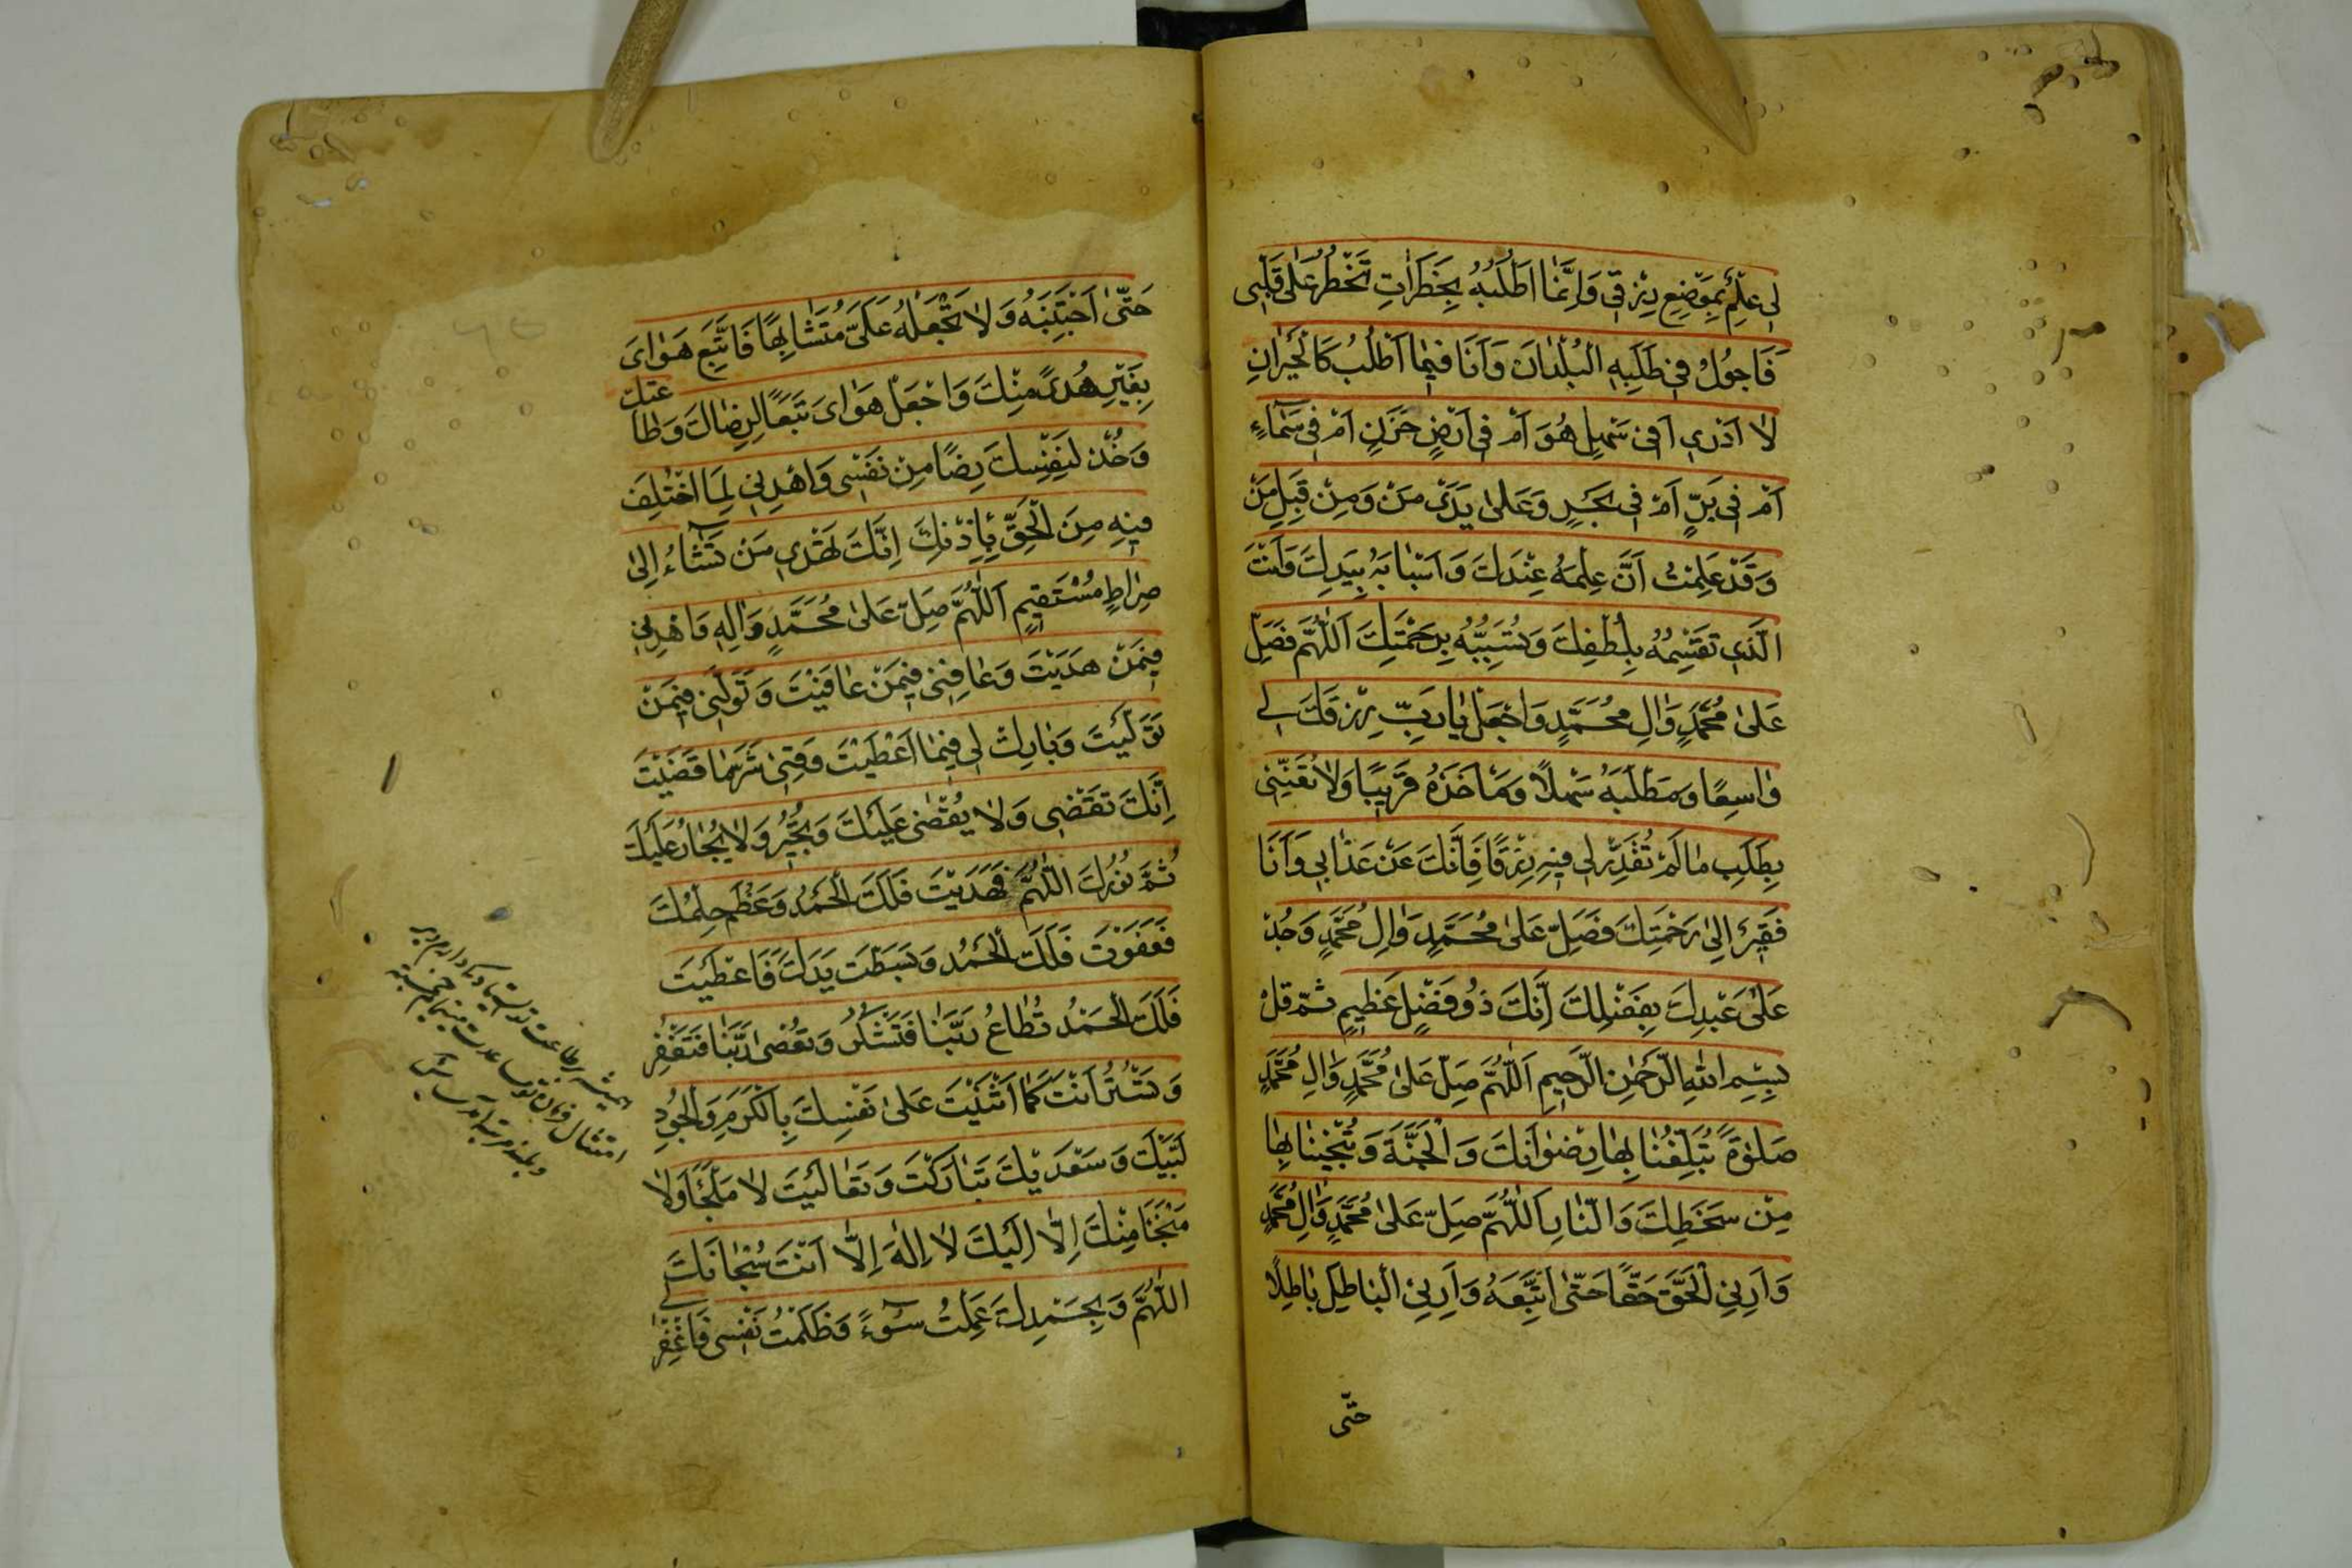 لِى عِلْمٌ بِمَوْضِعِ رِزْقِى وَاِنَّمٰا اَطْلُبُهُ بِخَطَرٰاتٍ تَخْطُرُ عَلٰى قَلْبِى
فَاَجُولُ فِى طَلَبِهِ الْبُلْدٰانَ وَاَنَا فِيمٰا اَطْلُبُ كَالْحَيْرٰانِ
لٰا اَدْرِى اَفِى سَهْلٍ هُوَ اَمْ فِى اَرْضٍ حَزَنٍ اَمْ فِى سَمٰآءٍ
اَمْ فِى بَرٍّ اَمْ فِى بَحْرٍ وَعَلٰى يَدَىْ مَنْ وَمِنْ قِبَلِ مَنْ
وَقَدْ عَلِمْتُ اَنَّ عِلْمَهُ عِنْدَكَ وَاَسْبٰابَهُ بِيَدِكَ وَاَنْتَ
الَّذِى تَقْسِمُهُ بِلُطْفِكَ وَتُسَبِّبُهُ بِرَحْمَتِكَ اَللّٰهُمَّ فَصَلِّ
عَلٰى مُحَمَّدٍ وَاٰلِ مُحَمَّدٍ وَاجْعَلْ يٰا رَبِّ رِزْقَكَ لِى
وٰاسِعًا وَمَطْلَبَهُ سَهْلًا وَمَأْخَذَهُ قَرِيبًا وَلٰا تُعَنِّنِى
بِطَلَبِ مٰا لَمْ تُقَدِّرْ لِى فِيهِ رِزْقًا فَاِنَّكَ عَنْ عَذٰابِى وَاَنَا
فَقِيرٌ اِلٰى رَحْمَتِكَ فَصَلِّ عَلٰى مُحَمَّدٍ وَاٰلِ مُحَمَّدٍ وَجُدْ
عَلٰى عَبْدِكَ بِفَضْلِكَ اِنَّكَ ذُو فَضْلٍ عَظِيمٍ ثم قل
بِسْمِ اللّٰهِ الرَّحْمٰنِ الرَّحِيمِ اَللّٰهُمَّ صَلِّ عَلٰى مُحَمَّدٍ وَاٰلِ مُحَمَّدٍ
صَلٰوةً تُبَلِّغُنٰا بِهٰا رِضْوٰانَكَ وَالْجَنَّةَ وَتُنْجِينٰا بِهٰا
مِنْ سَخَطِكَ وَالنّٰارِ اَللّٰهُمَّ صَلِّ عَلٰى مُحَمَّدٍ وَاٰلِ مُحَمَّدٍ
وَاَرِنِى الْحَقَّ حَقًّا حَتّٰى اَتَّبِعَهُ وَاَرِنِى الْبٰاطِلَ بٰاطِلًا
حتّى
حَتّٰى اَجْتَنِبَهُ وَلٰا تَجْعَلْهُ عَلَىَّ مُتَشٰابِهًا فَاَتَّبِعَ هَوٰاىَ
بِغَيْرِ هُدًى مِنْكَ وَاجْعَلْ هَوٰاىَ تَبَعًا لِرِضٰاكَ وَطٰا
عتك
وَخُذْ لِنَفْسِكَ رِضًا مِنْ نَفْسِى وَاهْدِنِى لِمَا اخْتُلِفَ
فِيهِ مِنَ الْحَقِّ بِاِذْنِكَ اِنَّكَ تَهْدِى مَنْ تَشٰآءُ اِلٰى
صِرٰاطٍ مُسْتَقِيمٍ اَللّٰهُمَّ صَلِّ عَلٰى مُحَمَّدٍ وَاٰلِهِ وَاهْدِنِى
فِيمَنْ هَدَيْتَ وَعٰافِنِى فِيمَنْ عٰافَيْتَ وَتَوَلَّنِى فِيمَنْ
تَوَلَّيْتَ وَبٰارِكْ لِى فِيمٰا اَعْطَيْتَ وَقِنِى شَرَّ مٰا قَضَيْتَ
اِنَّكَ تَقْضِى وَلٰا يُقْضٰى عَلَيْكَ وَتُجِيرُ وَلٰا يُجٰارُ عَلَيْكَ
تُمَّ نُورُكَ اللّٰهُمَّ فَهَدَيْتَ فَلَكَ الْحَمْدُ وَعَظُمَ حِلْمُكَ
فَعَفَوْتَ فَلَكَ الْحَمْدُ وَبَسَطْتَ يَدَكَ فَاَعْطَيْتَ
فَلَكَ الْحَمْدُ تُطٰاعُ رَبَّنٰا فَتَشْكُرُ وَتُعْصٰى رَبَّنٰا فَتَغْفِرُ
وَتَسْتُرُ اَنْتَ كَمٰا اَثْنَيْتَ عَلٰى نَفْسِكَ بِالْكَرَمِ وَالْجُودِ
لَبَّيْكَ وَسَعْدَيْكَ تَبٰارَكْتَ وَتَعٰالَيْتَ لٰا مَلْجَأَ وَلٰا
مَنْجَا مِنْكَ اِلّٰا اِلَيْكَ لٰا اِلٰهَ اِلّٰا اَنْتَ سُبْحٰانَكَ
اللّٰهُمَّ وَبِحَمْدِكَ عَمِلْتُ سُوٓءً وَظَلَمْتُ نَفْسِى فَاغْفِرْ
لِى